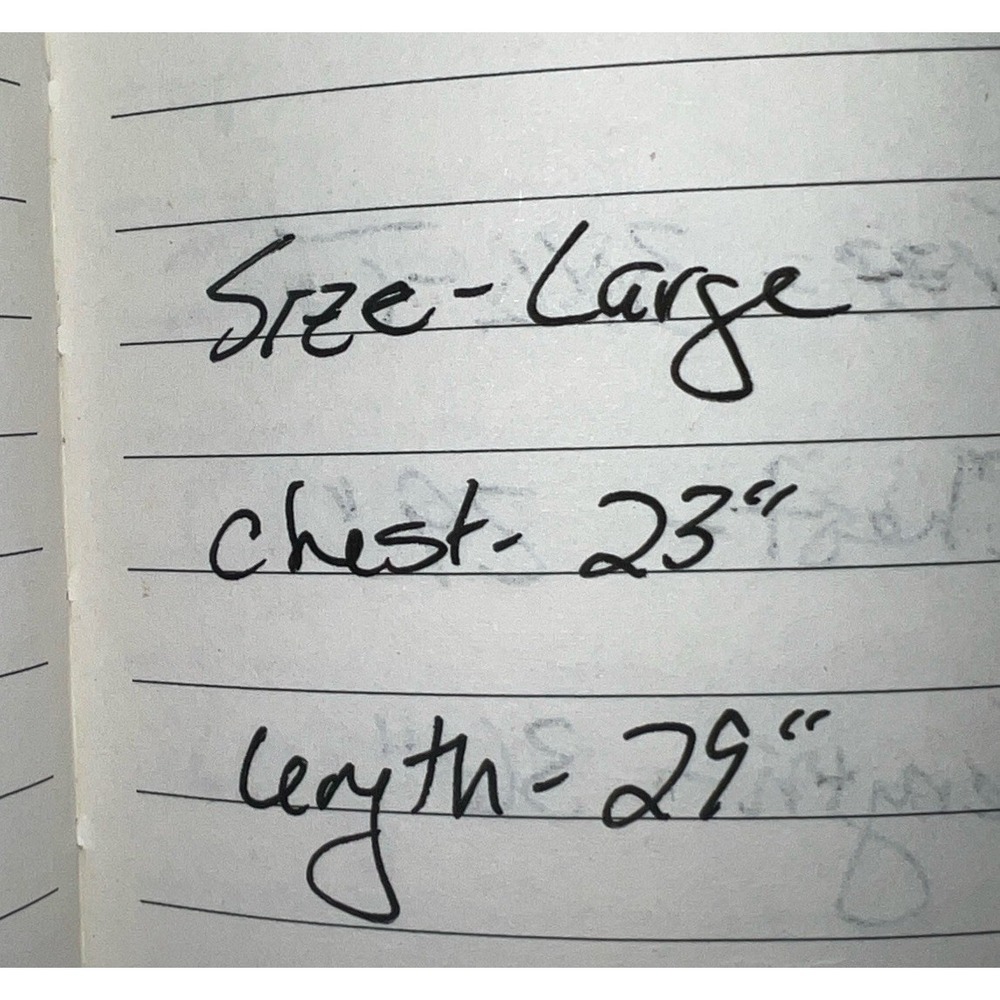 Size - Large
Chest - 23"
Length - 29"